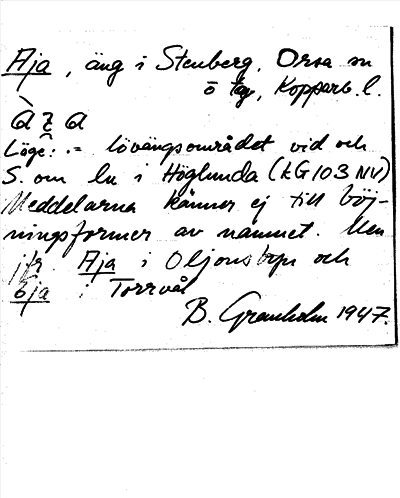 Aja, äng i Stenberg, Orsa sn
ö tg, Kopparb. l.
Läge: .= lövängsområdet vid och
S. om ln i Höglunda (LG 103 NV)
Meddelarna känner ej till böj-
ningsformer av namnet. Men
jfr. Aja i Oljonsbyn och
Torrvål
B. Granholm 1947.